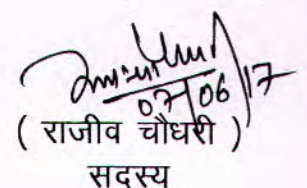 07/06/17
( राजीव चौधरी )
सदस्य